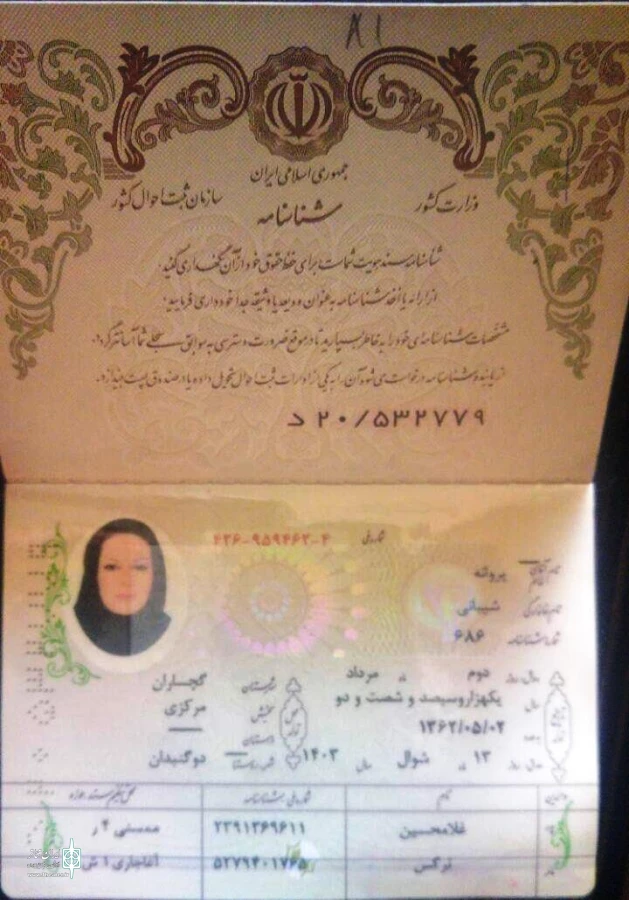 ۸۱
جمهوری اسلامی ایران
وزارت کشور
سازمان ثبت احوال کشور
شناسنامه
شناسنامه سند هویت شماست برای حفظ حقوق خود از آن نگهداری کنید.
از ارائه یا اخذ شناسنامه به عنوان ودیعه یا وثیقه جداً خودداری فرمایید.
مشخصات شناسنامه‌ای خود را به خاطر بسپارید تا در موقع ضرورت دسترسی به سوابق سجلی شما آسانتر گردد.
از یابنده شناسنامه درخواست می‌شود آن را به یکی از ادارات ثبت احوال تحویل داده یا در صندوق پست بیندازد.
د ۲۰/۵۳۲۷۷۹
شماره ملی ۴۲۶-۹۵۹۴۶۳-۴
نام پروانه
نام خانوادگی شیبانی
شماره شناسنامه ۶۸۶
دوم مرداد
یکهزار و سیصد و شصت و دو
۱۳۶۲/۰۵/۰۲
۱۳ شوال ۱۴۰۳
شهرستان گچساران
بخش مرکزی
دهستان —
شهر دوگنبدان
نام
شماره ملی شناسنامه
غلامحسین ۲۳۹۱۳۶۹۶۱۱ ممسنی
نرگس آغاجاری